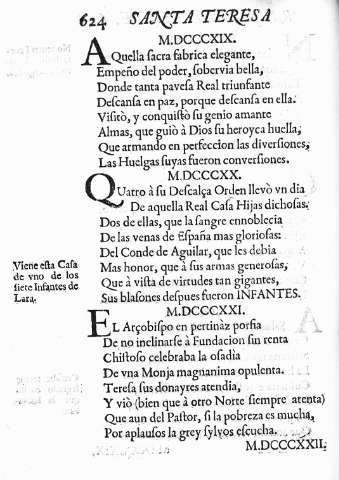 624 SANTA TERESA
M.DCCCXIX.
AQuella sacra fabrica elegante,
Empeño del poder, sobervia bella,
Donde tanta pavesa Real triunfante
Descansa en paz, porque descansa en ella.
Visitò, y conquistò su genio amante
Almas, que guiò à Dios su heroyca huella,
Que armando en perfeccion las diversiones,
Las Huelgas suyas fueron conversiones.
M.DCCCXX.
QUatro à su Descalça Orden llevò vn dia
De aquella Real Casa Hijas dichosas;
Dos de ellas, que la sangre ennoblecia
De las venas de España mas gloriosas:
Del Conde de Aguilar, que les debia
Mas honor, que à sus armas generosas,
Que à vista de virtudes tan gigantes,
Sus blasones despues fueron INFANTES.
Viene esta Casa
de vno de los
siete Infantes de
Lara.
M.DCCCXXI.
EL Arçobispo en pertinàz porfia
De no inclinarse à Fundacion sin renta
Chistoso celebraba la osadia
De vna Monja magnanima opulenta.
Teresa sus donayres atendia,
Y viò (bien que à otro Norte siempre atenta)
Que aun del Pastor, si la pobreza es mucha,
Por aplausos la grey sylvos escucha.
M.DCCCXXII.